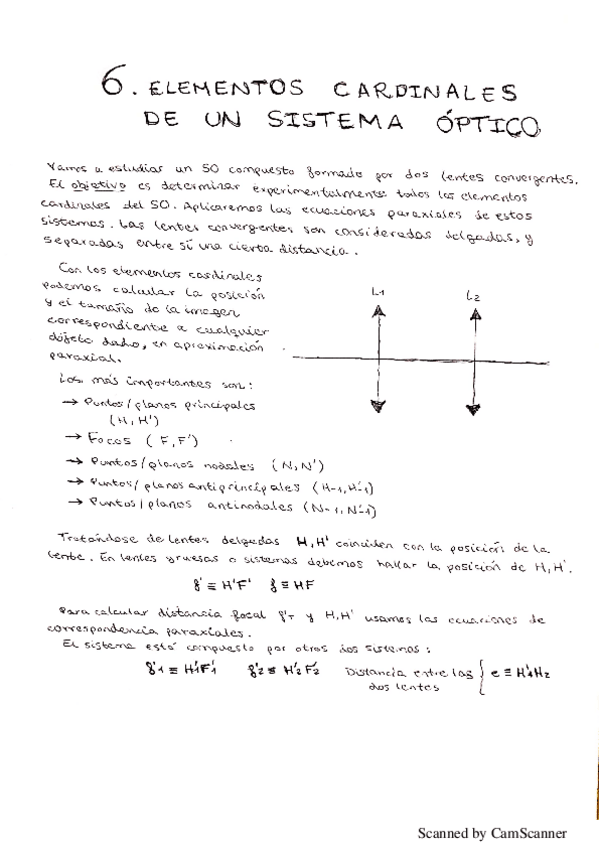 6. ELEMENTOS CARDINALES
DE UN SISTEMA ÓPTICO
Vamos a estudiar un SO compuesto formado por dos lentes convergentes.
El objetivo es determinar experimentalmente todos los elementos
cardinales del SO. Aplicaremos las ecuaciones paraxiales de estos
sistemas. Las lentes convergentes son consideradas delgadas, y
separadas entre sí una cierta distancia.
Con los elementos cardinales
podemos calcular la posición
y el tamaño de la imagen
correspondiente a cualquier
objeto dado, en aproximación
paraxial.
L1
L2
Los más importantes son:
→ Puntos/planos principales
(H, H')
→ Focos (F, F')
→ Puntos/planos nodales (N, N')
→ Puntos/planos antiprincipales (H-1, H'-1)
→ Puntos/planos antinodales (N-1, N'-1)
Tratándose de lentes delgadas H, H' coinciden con la posición de la
lente. En lentes gruesas o sistemas debemos hallar la posición de H, H'.
f' ≡ H'F' f ≡ HF
Para calcular distancia focal f'T y H, H' usamos las ecuaciones de
correspondencia paraxiales.
El sistema está compuesto por otros dos sistemas:
f'1 ≡ H'1F'1 f'2 ≡ H'2F'2 Distancia entre las { e ≡ H'1H2
dos lentes
Scanned by CamScanner